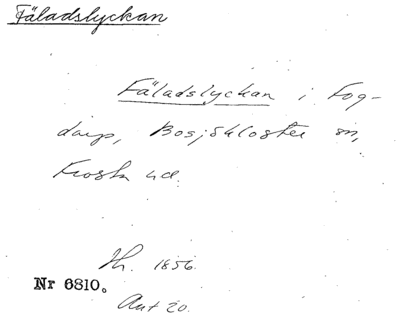 Fäladslyckan
Fäladslyckan i Fog-
darp, Bosjökloster sn,
Frosta hd.
Lh. 1856.
Nr 6810.
Ant 20.